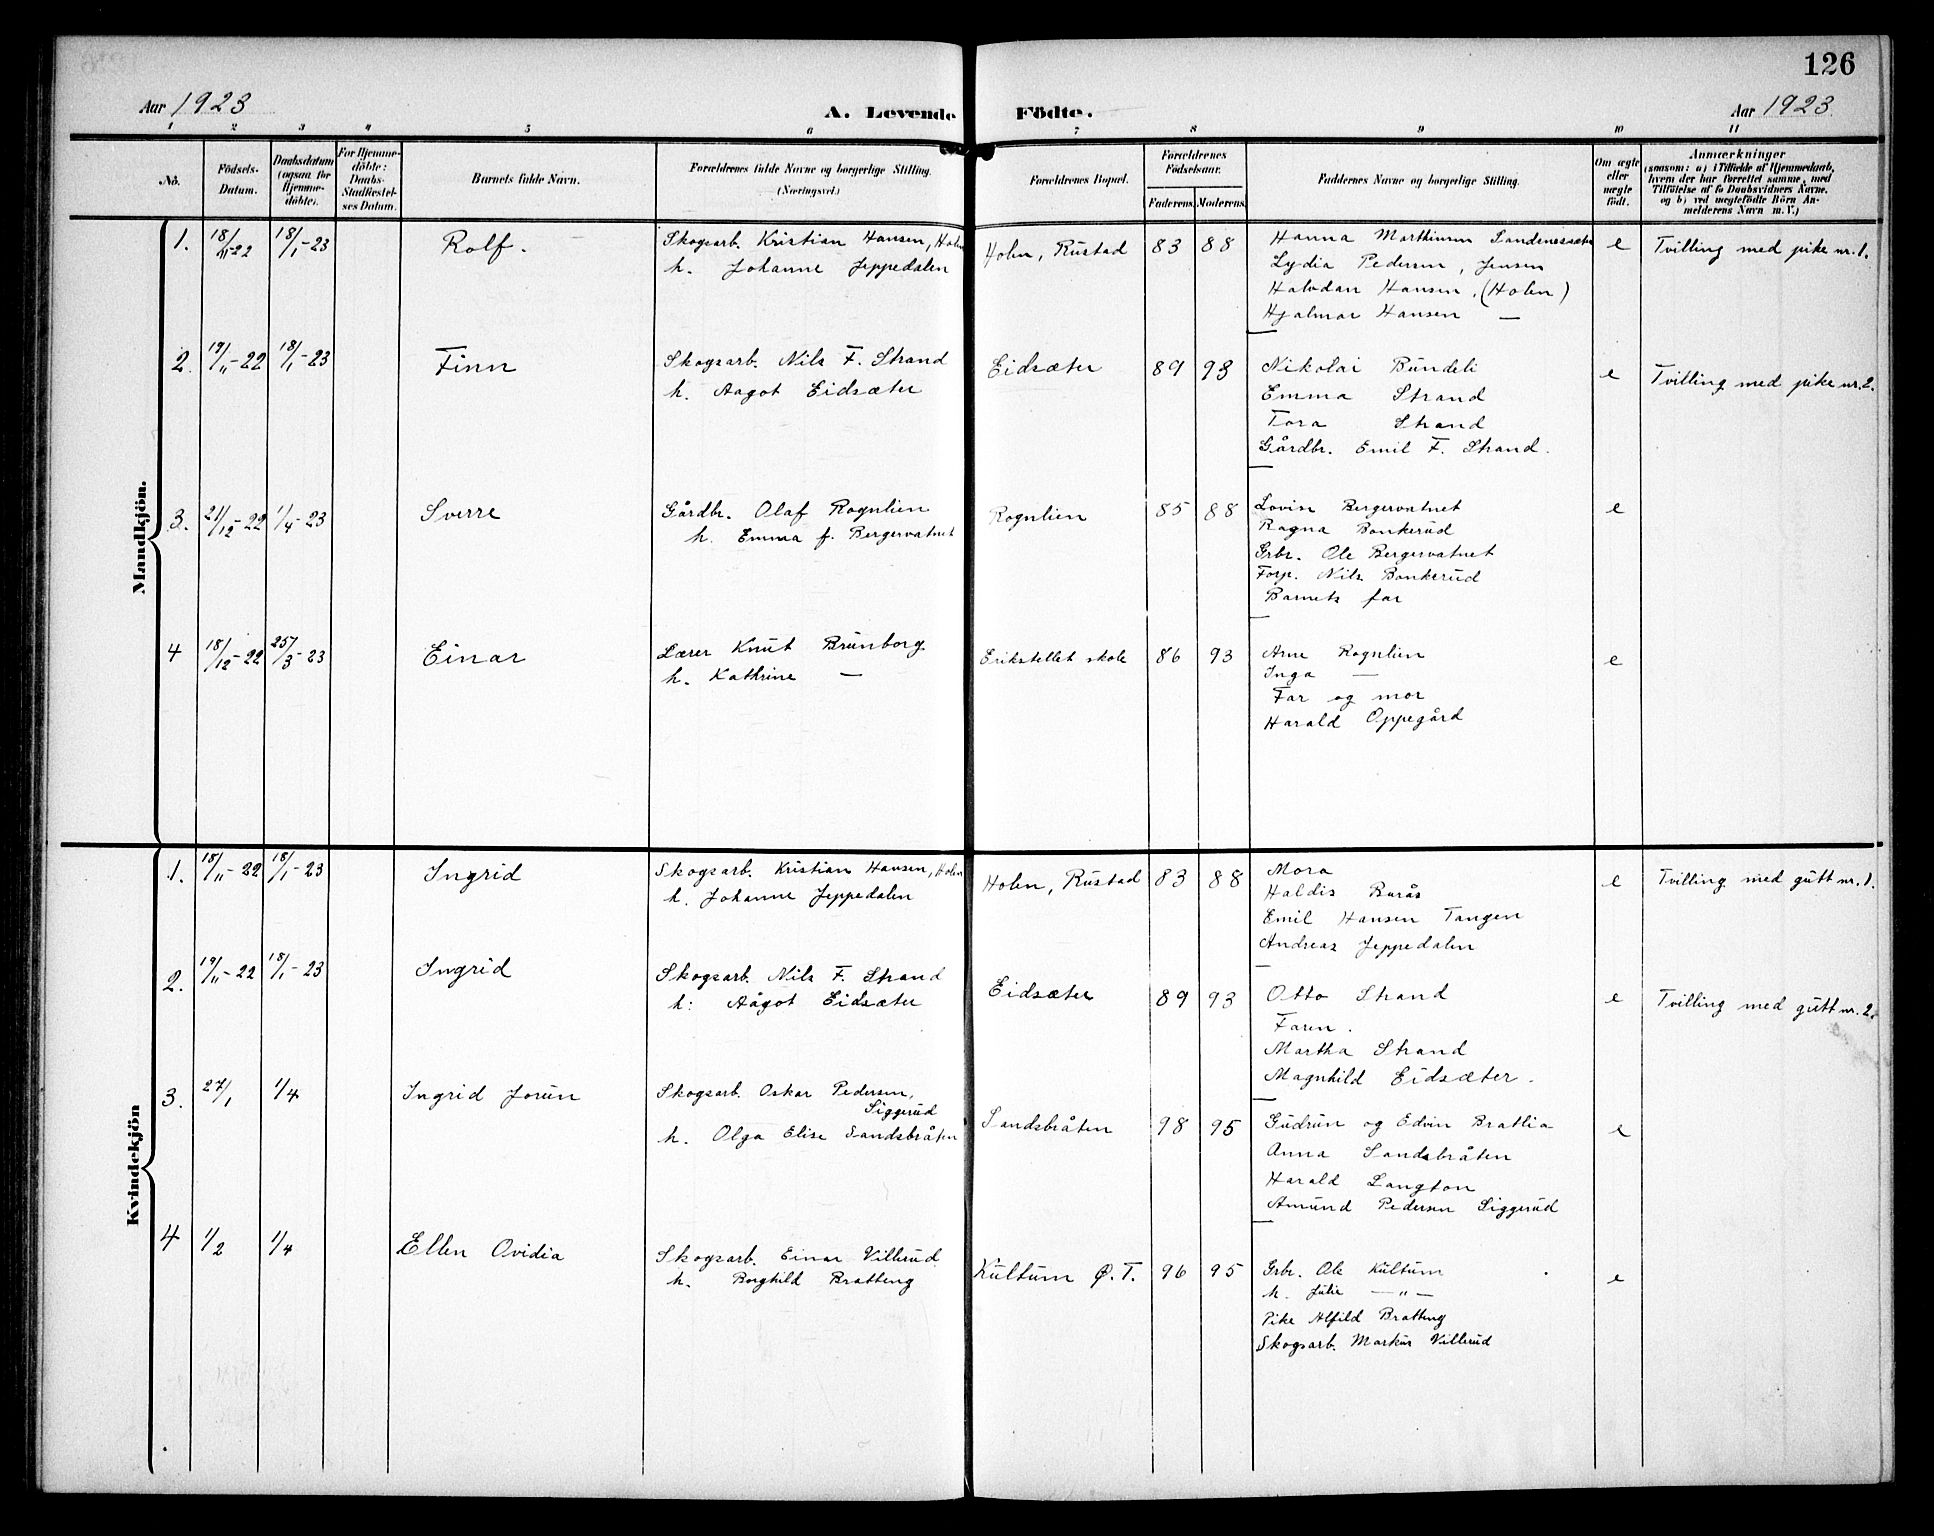 126
Aar 1923
A. Levende Födte.
Aar 1923.
1 2 3 4 5 6 7 8 9 10 11
No.
Födsels-Datum.
Daabsdatum (ogsaa for Hjemme-döbte).
For Hjemme-döbte: Daabs-Stadfæstel-ses Datum.
Barnets fulde Navn.
Forældrenes fulde Navne og borgerlige Stilling. (Næringsvei.)
Forældrenes Bopæl.
Forældrenes Födselsaar.
Faderens. Moderens.
Faddernes Navne og borgerlige Stilling.
Om ægte eller uægte födt.
Anmærkninger
(saasom: a) i Tilfælde af Hjemmedaab, hvem der har forrettet samme, med Tilföielse af to Daabsvidners Navne, og b) ved uægtefödte Börn An-melderens Navn m. V.)
Mandkjön.
1. 18/11-22 18/1-23 Rolf. Skogsarb. Kristian Hansen, Holen Holen, Rustad 83 88 Hanna Marthinsen Sandenessæter e Tvilling med pike nr. 1.
h. Johanne Jeppedalen Lydia Pedersen, Jensen
Halvdan Hansen, (Holen)
Hjalmar Hansen —
2. 19/11-22 18/1-23 Finn Skogsarb. Nils F. Strand Eidsæter 89 93 Nikolai Bundeli e Tvilling med pike nr. 2.
h. Aagot Eidsæter Emma Strand
Tora Strand
Gårdbr. Emil F. Strand.
3. 21/12-22 1/4-23 Sverre Gårdbr. Olaf Rognlien Rognlien 85 88 Lovise Bergervatnet e
h. Emma f. Bergervatnet Ragna Bonkerud
Grbr. Ole Bergervatnet
Forp. Nils Bonkerud
Barnets far
4 18/12-22 25/3-23 Einar Lærer Knut Brunborg Erikstellet skole 86 93 Arne Rognlien e
h. Kathrine — Inga —
Far og mor
Harald Oppegård
Kvindekjön
1. 18/11-22 18/1-23 Ingrid Skogsarb. Kristian Hansen, Holen Holen, Rustad 83 88 Mora e Tvilling med gutt nr. 1.
h. Johanne Jeppedalen Haldis Burås
Emil Hansen Tangen
Andreas Jeppedalen
2. 19/11-22 18/1-23 Ingrid Skogsarb. Nils F. Strand Eidsæter 89 93 Otto Strand e Tvilling med gutt nr. 2.
h: Aågot Eidsæter Faren.
Martha Strand
Magnhild Eidsæter.
3. 27/1 1/4 Ingrid Jorun Skogsarb. Oskar Pedersen, Siggerud Sandsbråten 98 95 Gudrun og Edvin Bratlia e
h. Olga Elise Sandsbråten Anna Sandsbråten
Harald Langton
Amund Pedersen Siggerud
4 1/2 1/4 Ellen Ovidia Skogsarb. Einar Villerud Kultum Ø. T. 96 95 Grbr. Ole Kultum e
h. Borghild Bratteng h. Julie —"—
Pike Alfild Bratteng
Skogsarb. Markus Villerud